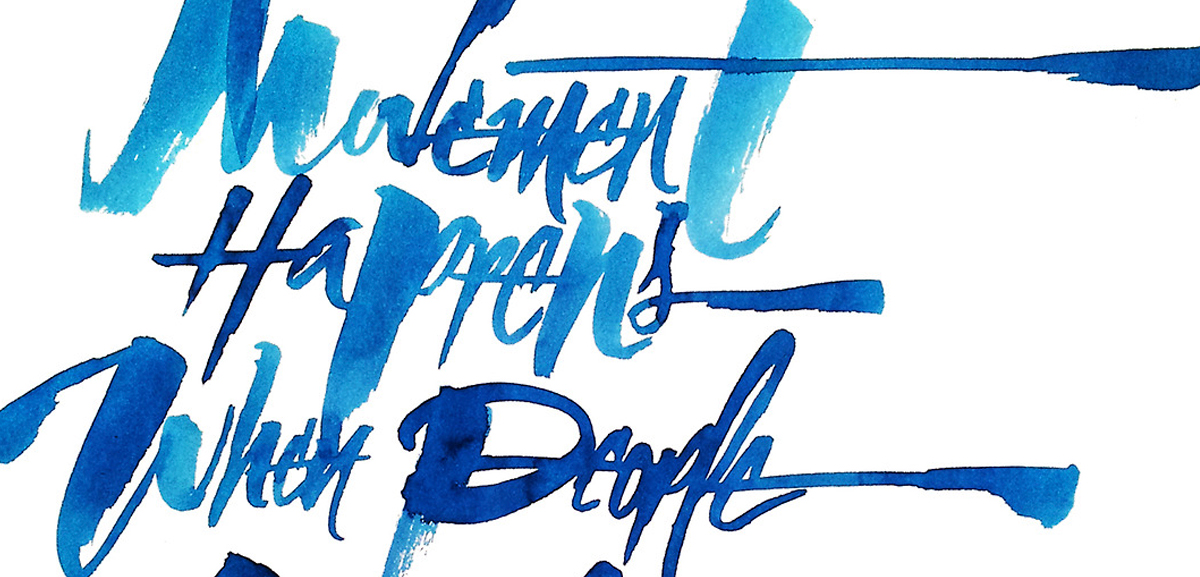 Movement
Happens
When People